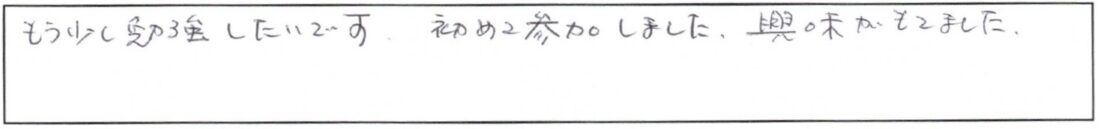 もう少し勉強したいです. 初めて参加しました. 興味がもてました.